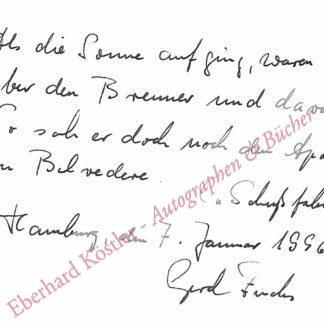 Als die Sonne aufging, waren
über den Brenner und davo
So sah er doch noch den Apo
im Belvedere.
(„Schußfahr
Hamburg, den 7. Januar 1996
Gerd Fuchs
Eberhard Köstler - Autographen & Bücher